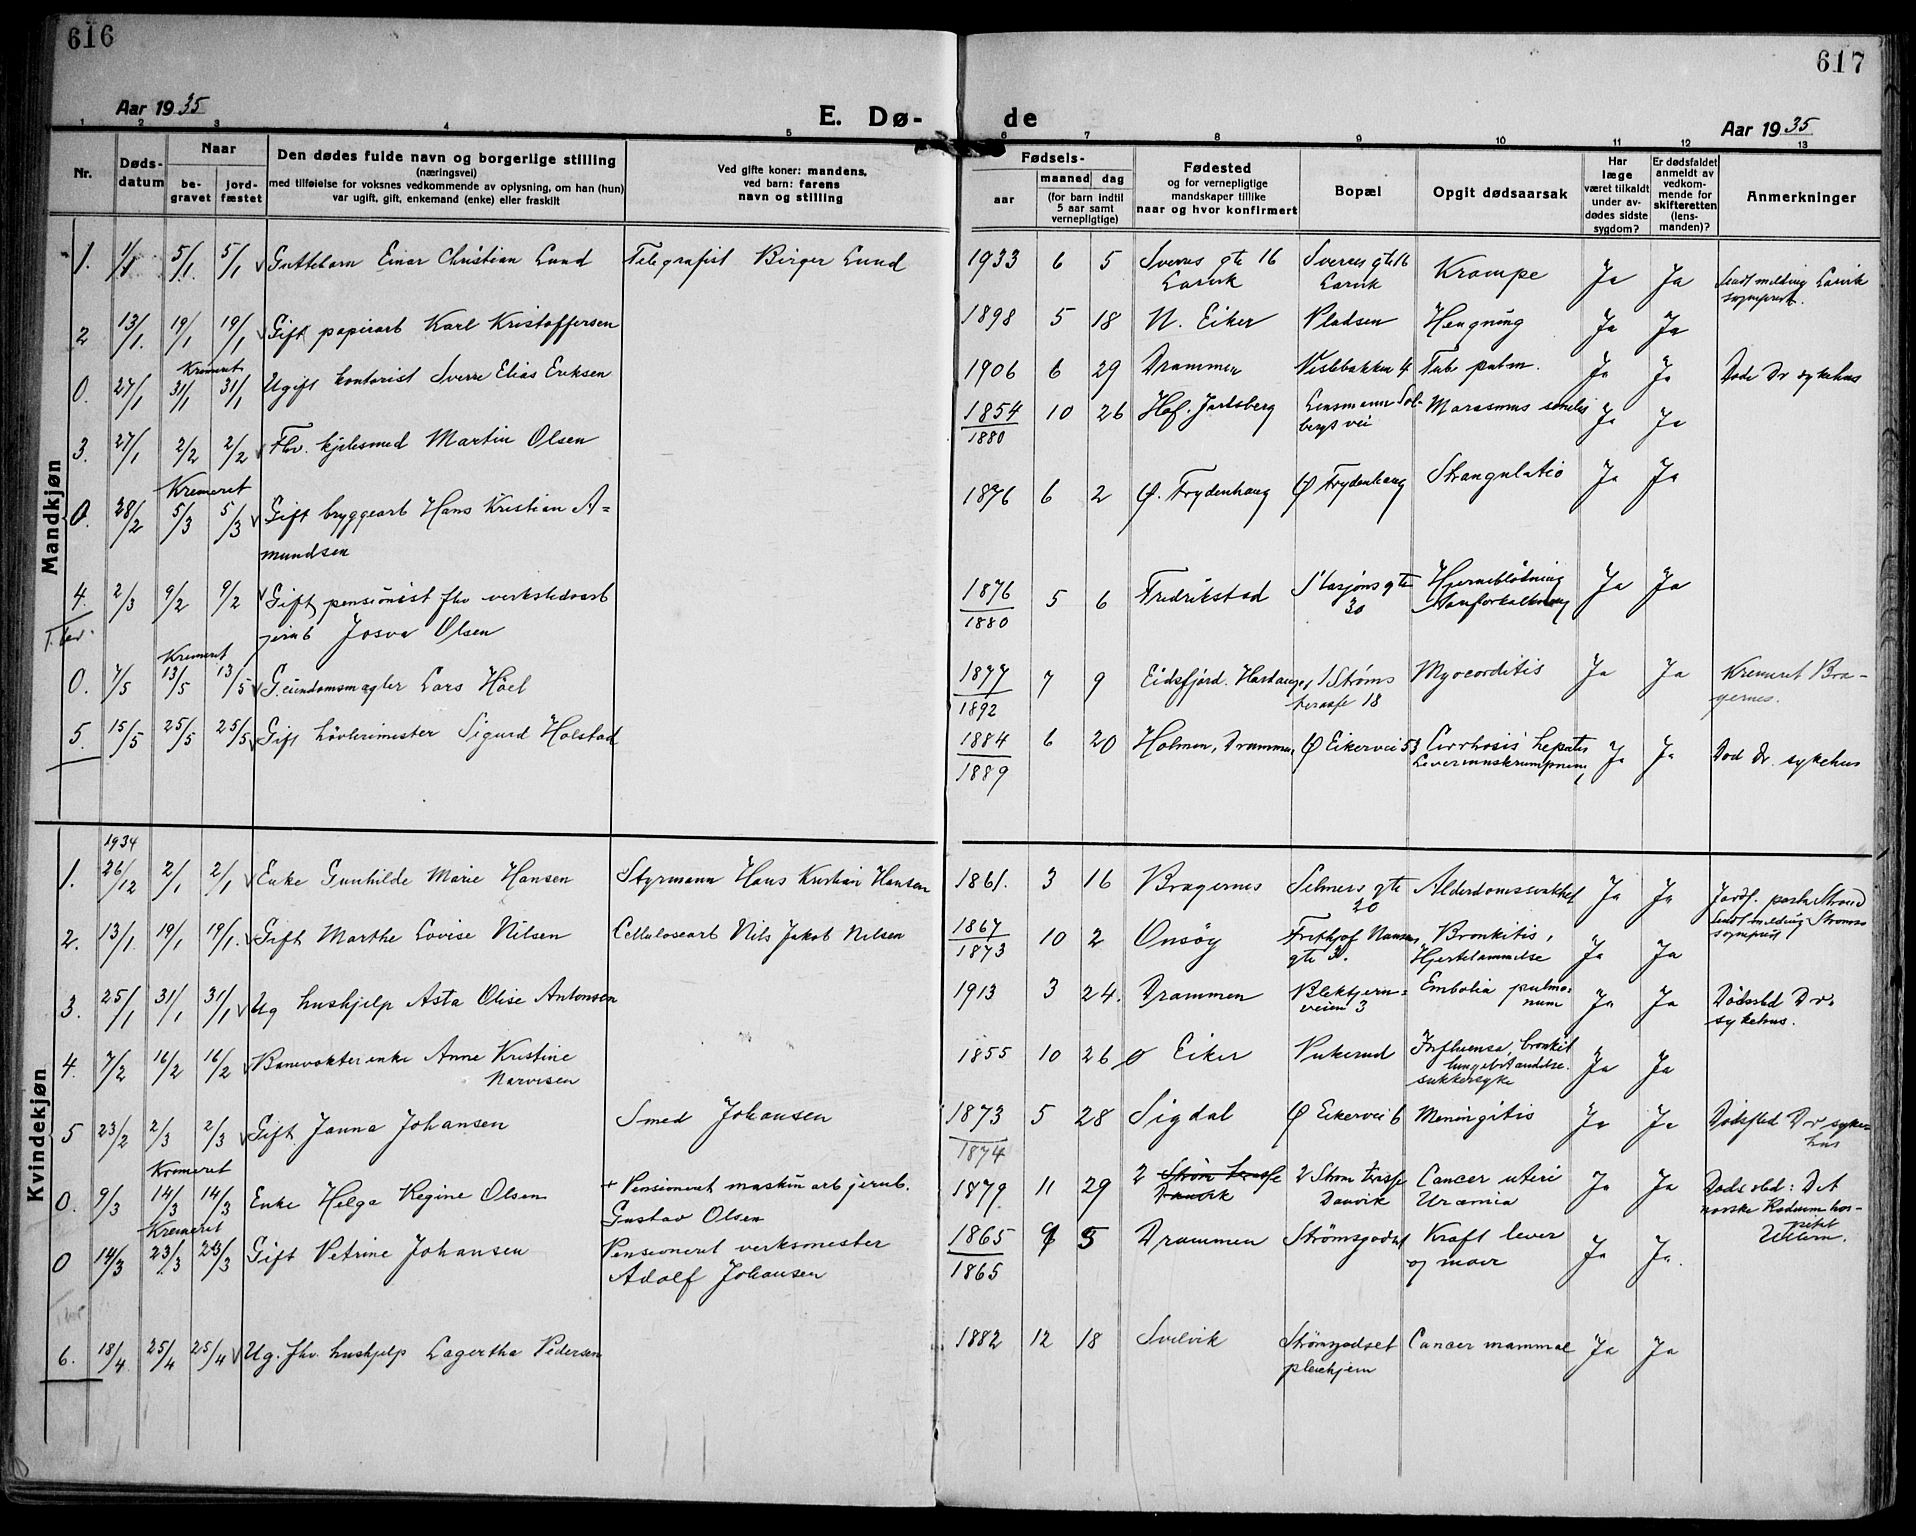 616
617
Aar 1935
E. Dø-
de
Aar 1935
1 2 3 4 5 6 7 8 9 10 11 12 13
Nr.
Døds-
datum
Naar
be-
gravet
jord-
fæstet
Den dødes fulde navn og borgerlige stilling
(næringsvei)
med tilføielse for voksnes vedkommende av oplysning, om han (hun)
var ugift, gift, enkemand (enke) eller fraskilt
Ved gifte koner: mandens,
ved barn: farens
navn og stilling
Fødsels-
aar
maaned dag
(for barn indtil
5 aar samt
vernepligtige)
Fødested
og for vernepligtige
mandskaper tillike
naar og hvor konfirmert
Bopæl
Opgit dødsaarsak
Har
læge
været tilkaldt
under av-
dødes sidste
sygdom?
Er dødsfaldet
anmeldt av
vedkom-
mende for
skifteretten
(lens-
manden)?
Anmerkninger
Mandkjøn
1. 1/1 5/1 5/1 Guttebarn Einar Christian Lund Telegrafist Birger Lund 1933 6 5 Sverres gte 16 Sverres gt 16 Krampe Ja Ja Sendt melding Larvik
Larvik Larvik sogneprest.
2 13/1. 19/1 19/1 Gift papirarb Karl Kristoffersen 1898 5 18 N. Eiker Pladsen Hengning Ja Ja
Kremert
0. 27/1 31/1 31/1 Ugift kontorist Sverre Elias Eriksen 1906 6 29 Drammen 4 Tub. pulm. Ja Ja Døde Dr sykehus
3. 27/1 2/2 2/2 Fhv. kjelesmed Martin Olsen 1854 10 26 Hof. Jarlsberg Lensmann Sol- Marasmus senilis Ja Ja
1880 bergs vei
Kremeret
0. 28/2 5/3 5/3 Gift bryggearb Hans Kristian A= 1876 6 2 Ø. Frydenhaug Ø Frydenhaug Strangulatio Ja Ja
mundsen
4. 2/3 9/2 9/2 Gift pensionist fhv verkstedsarb 1876 5 6 Fredrikstad Stasjons gte Hjerneblødning Ja Ja
jernb Josva Olsen 1880 30
Kremeret
0. 7/5 13/5 13/5 G. eiendomsmægler Lars Hoel 1877 7 9 Eidsfjord. Hardanger 1 Strøms Myocarditis Ja Ja Kremeret Bra-
1892 terasse 18 gernes.
5. 15/5 25/5 25/5 Gift høvlerimester Sigurd Holstad 1884 6 20 Holmen, Drammen Ø Eikervei 53 Cirrhosis hepatis Ja Ja Død Dr. sykehus
1889
Kvindekjøn
1934
1. 26/12 2/1 2/1 Enke Gunhilde Marie Hansen Styrmann Hans Kristian Hansen 1861. 3 16 Bragernes Selmers gte Alderdomssvakhet Ja Ja Jordf. paa Strømsø
20 Sendt melding Strømsø
2. 13/1 19/1 19/1. Gift Marthe Lovise Nilsen Cellulosearb Nils Jakob Nilsen 1867 10 2 Onsøy Fritjof Nansens Bronkitis, Ja Ja sogneprest
1873 gte 3. Hjertelammelse
3. 25/1 31/1 31/1 Ug hushjelp Asta Olise Antonsen 1913 3 24. Drammen Blektjern= Embolia pulmo= Ja Ja Dødssted Dr.
veien 3 num sykehus.
4. 7/2 16/2 16/2 Banevokterenke Anne Kristine 1855 10 26 Ø Eiker Pukerud Influensa, bronkit Ja Ja
Narvesen lungebetændelse.
sukkersyke
5 23/2 2/3 2/3 Gift. Janna Johansen Smed Johansen 1873 5 28 Sigdal Ø Eikervei 6 Meningitis Ja Ja Dødssted Dr syke
1874 hus
Kremeret
0. 9/3 14/3 14/3 Enke Helga Regine Olsen + Pensioneret maskinarb jernb. 1879 11 29 2 Strøm terasse 2 Strøm terasse Cancer uteri Ja Ja Dødssted: Det
Gustav Olsen Danvik Danvik Uræmia norske Radium hos-
Kremeret pital
0 14/3 23/3 23/3 Gift Petrine Johansen Pensioneret verksmester 1865 9 5 Drammen Strømsgodset Kræft lever Ja Ja.
Adolf Johansen 1865 og mave
6. 18/4. 25/4 25/4 Ug. fhv. hushjelp Lagertha Pedersen 1882 12 18 Svelvik Strømsgodset Cancer mammae Ja Ja
pleiehjem